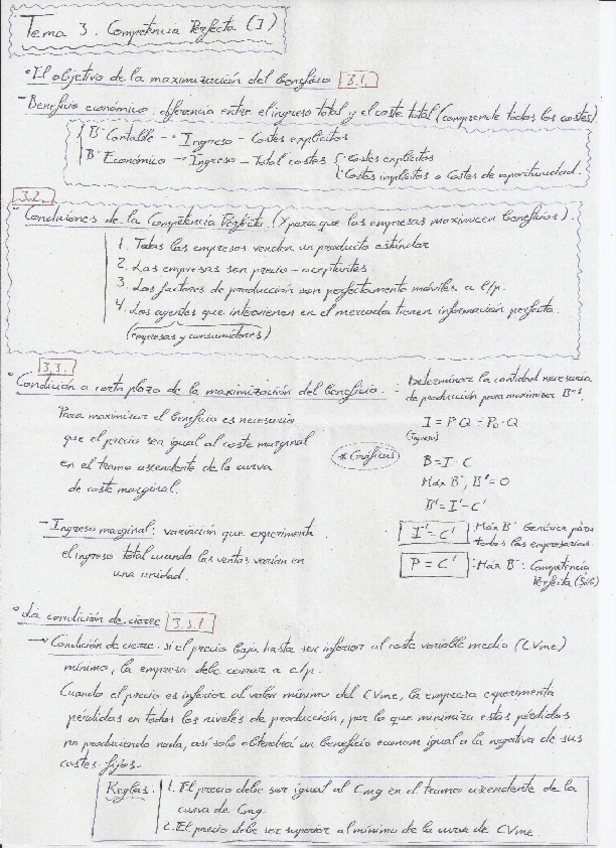 Tema 3. Competencia Perfecta (I)
• El objetivo de la maximización del beneficio 3.1.
- Beneficio económico: diferencia entre el ingreso total y el coste total (comprende todos los costes).
Bº Contable → Ingreso - Costes explícitos
Bº Económico → Ingreso - Total costes { · Costes explícitos
· Costes implícitos o Costes de oportunidad.
3.2.
Condiciones de la Competencia Perfecta. (Y para que las empresas maximicen beneficios).
1. Todas las empresas venden un producto estándar
2. Las empresas son precio-aceptantes
3. Los factores de producción son perfectamente móviles a l/p.
4. Los agentes que intervienen en el mercado tienen información perfecta.
(empresas y consumidores)
3.3.
• Condición a corto plazo de la maximización del beneficio :
Para maximizar el beneficio es necesario
que el precio sea igual al coste marginal
en el tramo ascendente de la curva
de coste marginal.
* (Gráficas)
- Ingreso marginal: variación que experimenta
el ingreso total cuando las ventas varían en
una unidad.
Determinar la cantidad necesaria
de producción para maximizar
I = P·Q = P₀·Q
(Ingreso)
B = I - C
Máx Bº, B' = 0
B' = I' - C'
I' = C' : Máx Bº Genérica para
todas las empresarias.
P = C' : Máx Bº: Competencia
Perfecta (Solo)
• La condición de cierre 3.3.1
→ Condición de cierre: si el precio baja hasta ser inferior al coste variable medio (CVme)
mínimo, la empresa debe cerrar a c/p.
Cuando el precio es inferior al valor mínimo del CVme, la empresa experimenta
pérdidas en todos los niveles de producción, por lo que minimiza estas pérdidas
no produciendo nada, así solo obtendrá un beneficio econom igual a la negativa de sus
costes fijos.
Reglas: 1. El precio debe ser igual al Cmg en el tramo ascendente de la
curva de Cmg.
2. El precio debe ser superior al mínimo de la curva de CVme.